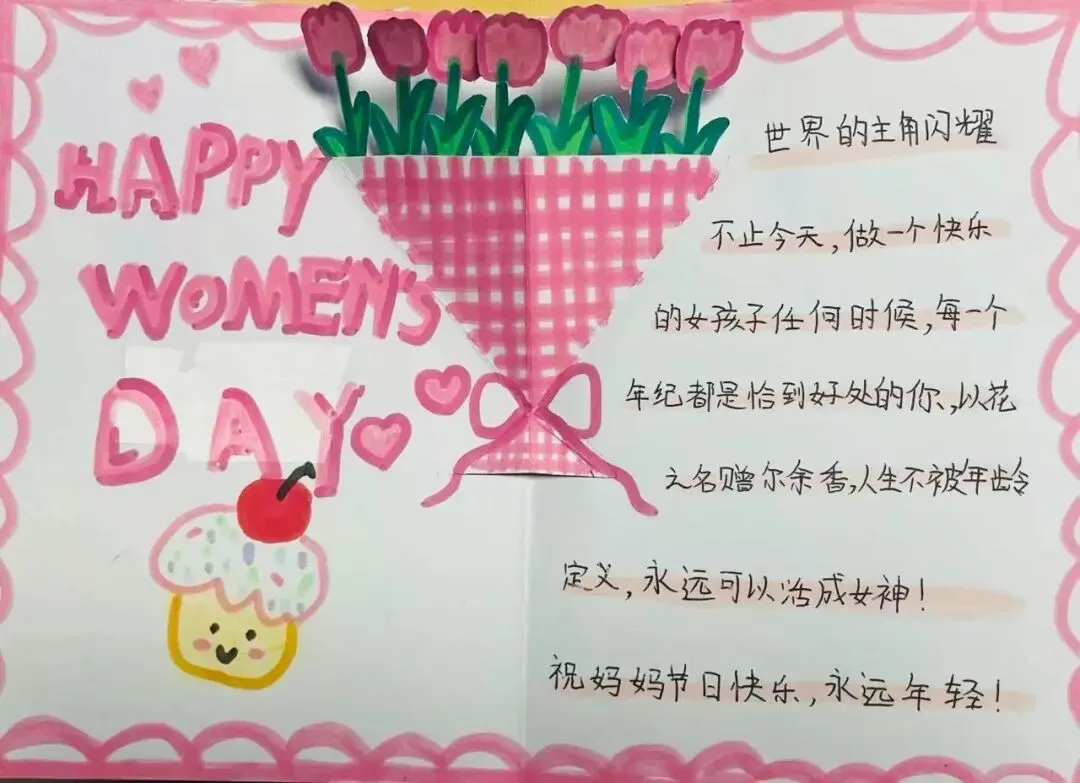 HAPPY
WOMEN'S
DAY
世界的主角闪耀
不止今天,做一个快乐
的女孩子任何时候,每一个
年纪都是恰到好处的你,以花
之名赠尔余香,人生不被年龄
定义,永远可以活成女神!
祝妈妈节日快乐,永远年轻!